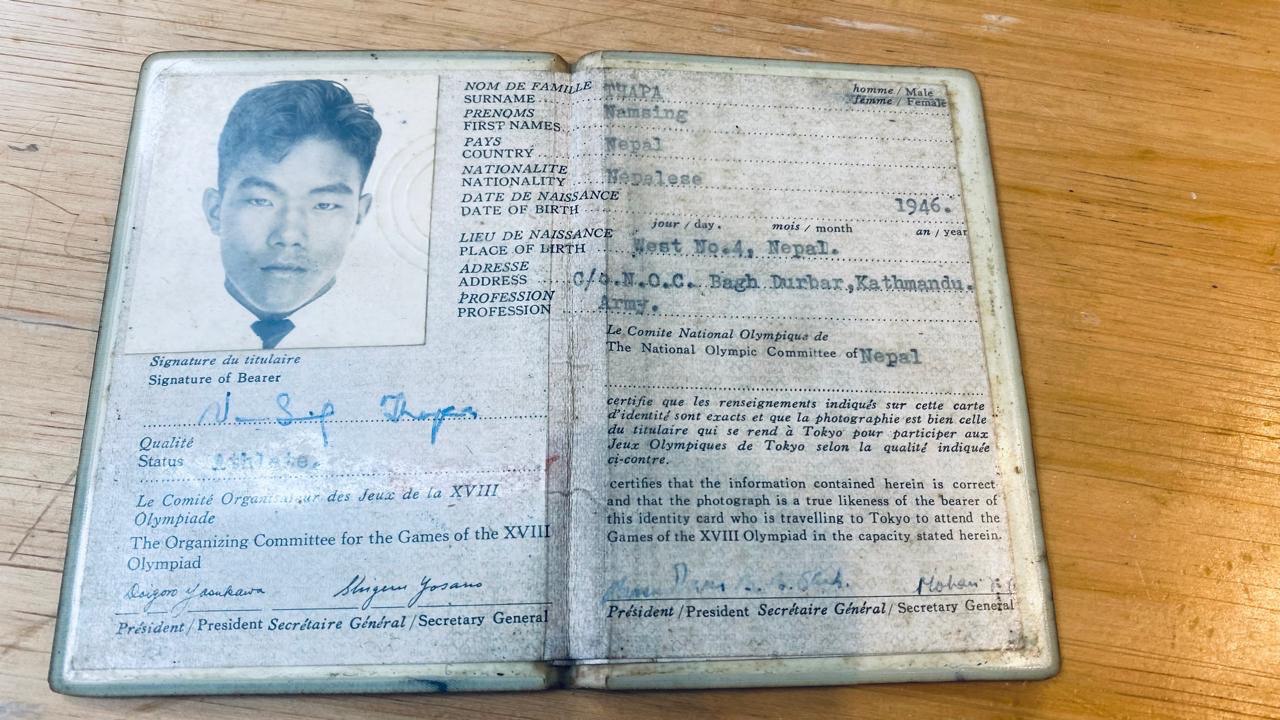 NOM DE FAMILLE
SURNAME THAPA
homme / Male
femme / Female
PRENOMS
FIRST NAMES Namsing
PAYS
COUNTRY Nepal
NATIONALITE
NATIONALITY Nepalese
DATE DE NAISSANCE
DATE OF BIRTH 1946.
jour / day. mois / month an / year
LIEU DE NAISSANCE
PLACE OF BIRTH West No.4, Nepal.
ADRESSE
ADDRESS C/o.N.O.C. Bagh Durbar,Kathmandu.
PROFESSION
PROFESSION Army.
Signature du titulaire
Signature of Bearer
Thapa
Qualité
Status Athlete.
Le Comité Organisateur des Jeux de la XVIII
Olympiade
The Organizing Committee for the Games of the XVIII
Olympiad
Daigoro Yasukawa Shigeru Yosano
Président / President Secrétaire Général / Secretary General
Le Comite National Olympique de
The National Olympic Committee of Nepal
certifie que les renseignements indiqués sur cette carte
d'identité sont exacts et que la photographie est bien celle
du titulaire qui se rend à Tokyo pour participer aux
Jeux Olympiques de Tokyo selon la qualité indiquée
ci-contre.
certifies that the information contained herein is correct
and that the photograph is a true likeness of the bearer of
this identity card who is travelling to Tokyo to attend the
Games of the XVIII Olympiad in the capacity stated herein.
Mohan
Président / President Secrétaire Général / Secretary General